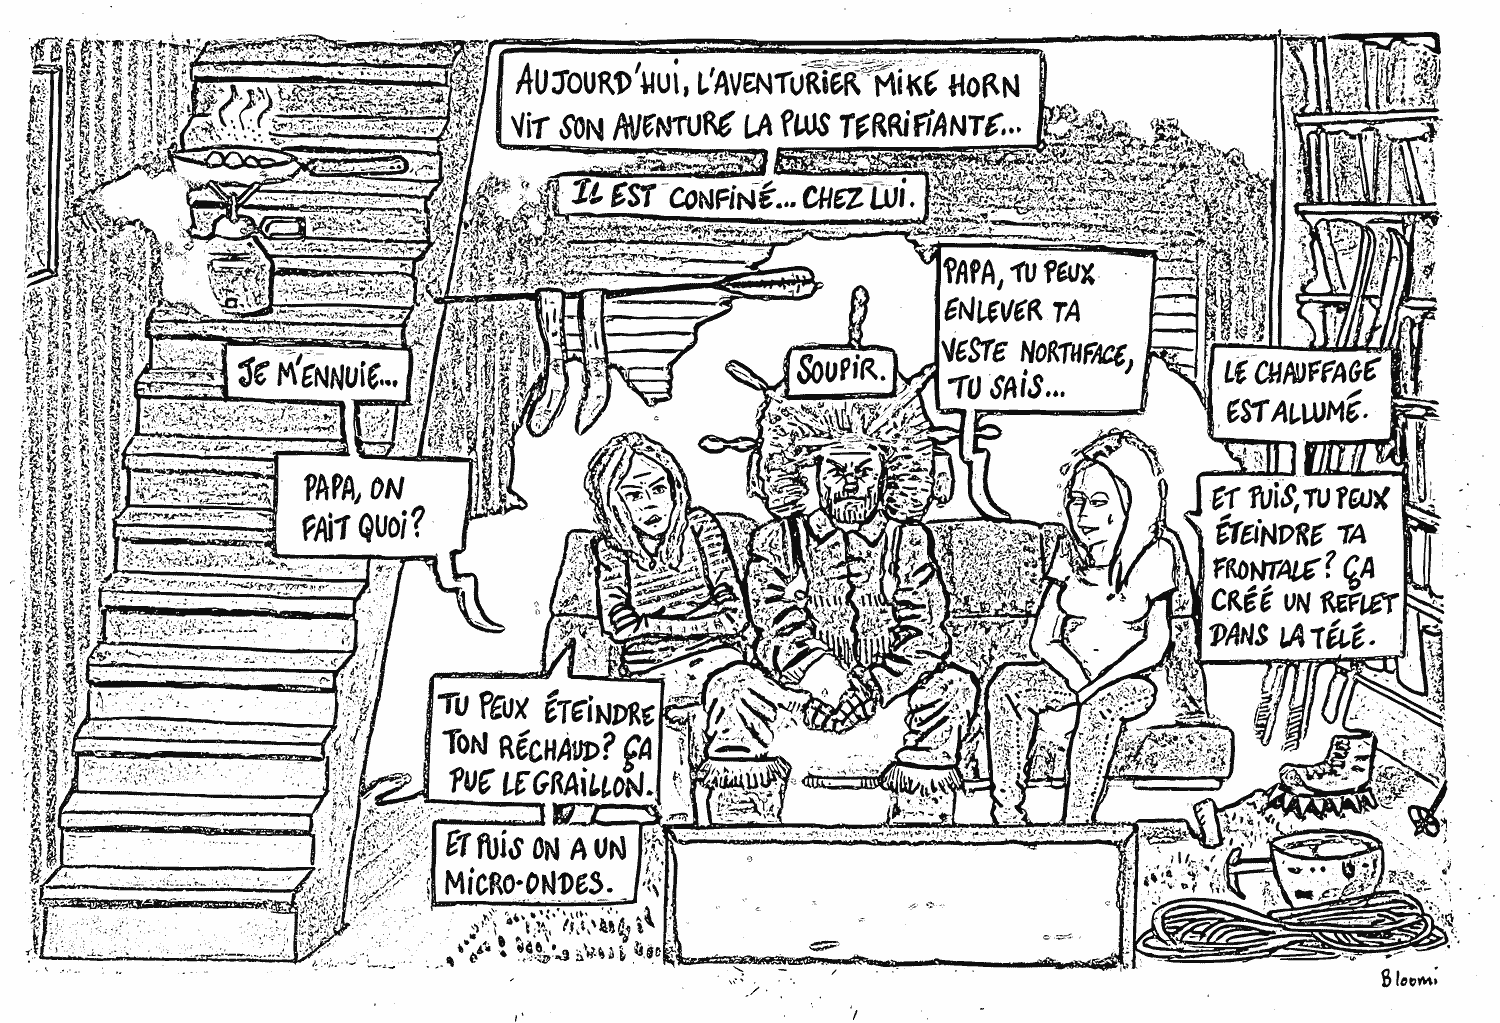 AUJOURD'HUI, L'AVENTURIER MIKE HORN
VIT SON AVENTURE LA PLUS TERRIFIANTE...
IL EST CONFINÉ... CHEZ LUI.
JE M'ENNUIE...
PAPA, ON
FAIT QUOI?
SOUPIR.
PAPA, TU PEUX
ENLEVER TA
VESTE NORTHFACE,
TU SAIS...
LE CHAUFFAGE
EST ALLUMÉ.
ET PUIS, TU PEUX
ÉTEINDRE TA
FRONTALE? ÇA
CRÉÉ UN REFLET
DANS LA TÉLÉ.
TU PEUX ÉTEINDRE
TON RÉCHAUD? ÇA
PUE LE GRAILLON.
ET PUIS ON A UN
MICRO-ONDES.
Bloomi